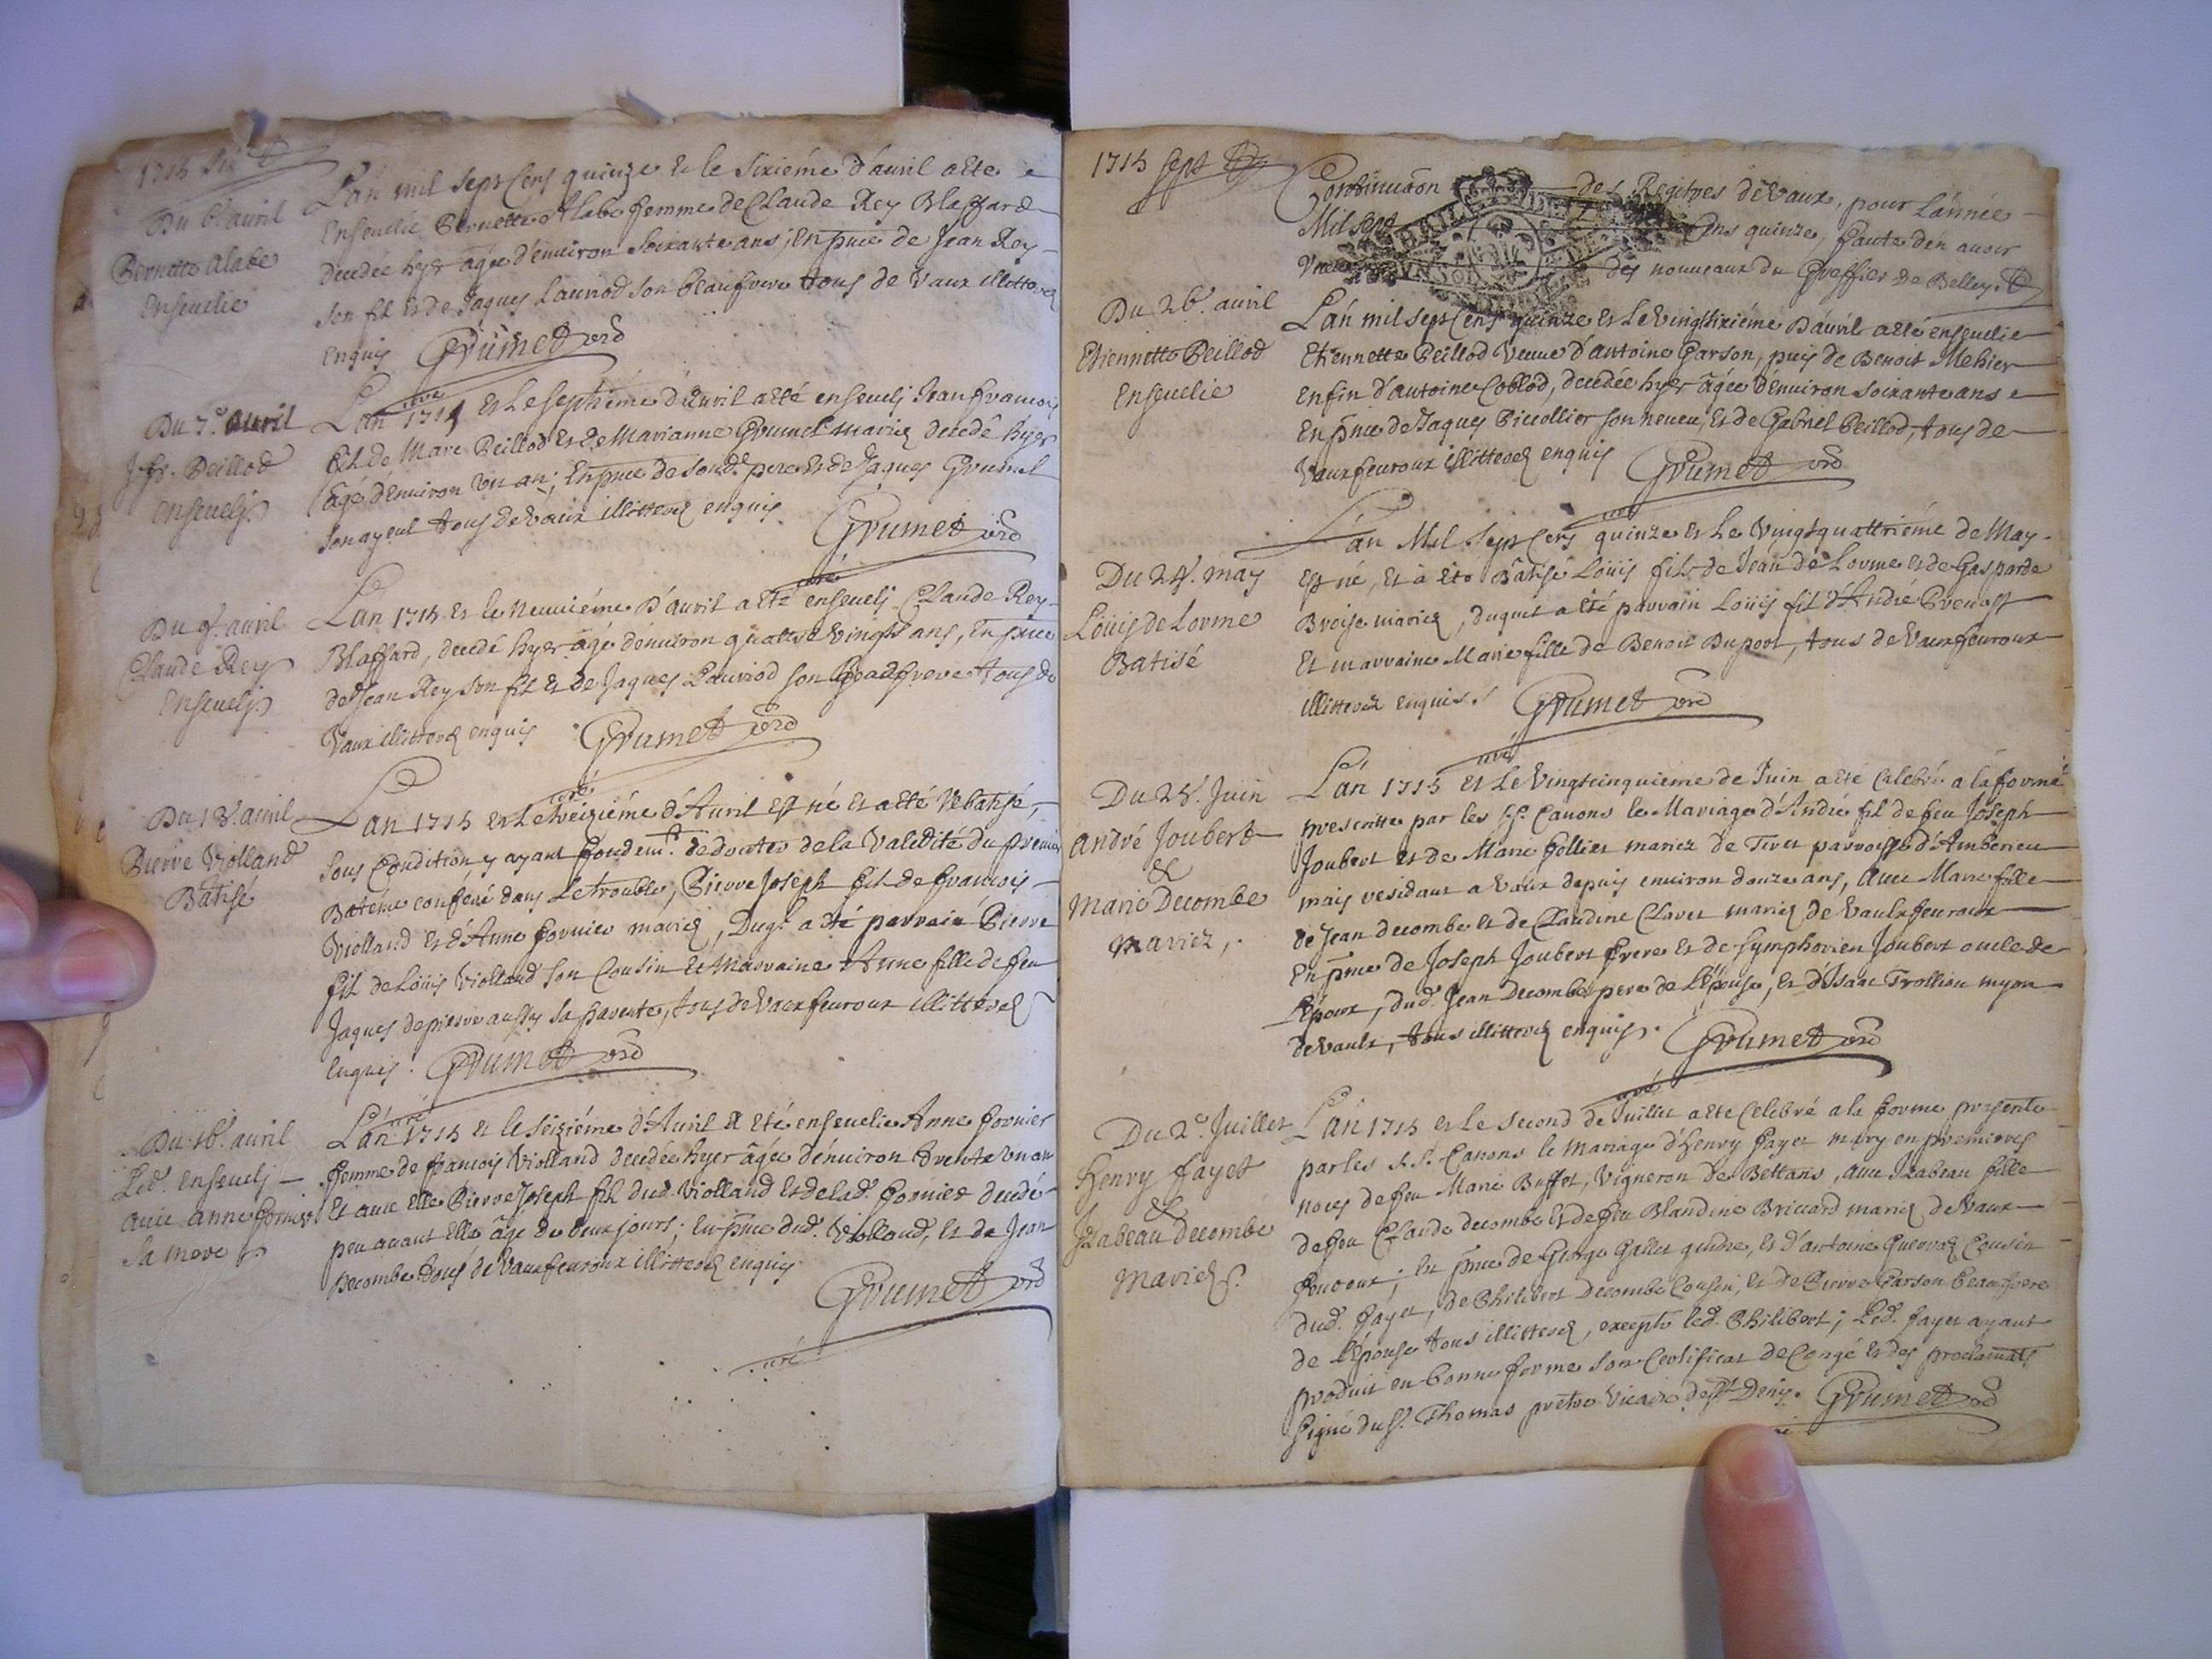 1715 six
Du 6e. avril
Bernette alabe
Enseuelie
Lan mil sept Cens quinze & le Sixiéme d'auril a Eté
Enseuelie Bernette Alabe femme de Claude Rey Blaffard
decedée hyer agée d'enuiron Soixante ans; En pnce de Jean Rey
son fil et de Jaques Lauriod son beaufrere tous de Vaux illitterez
enquis Grumet ord
curé
Du 7e. auril
J. fr. Peillod
enseuelj
Lan 1715 et Le septiéme d'Auril a eté enseuelj Jean francois
fil de Marc Peillod Et de Marianne Grumet mariez decedé hyer
âgé d'enuiron Vn an; En pnce de son d. pere et de Jaques Grumet
son ayeul tous de Vaux illitterez enquis
Grumet ord
curé
Du 9e. auril
Claude Rey
Enseuelj
Lan 1715 et le Neuuiéme d'auril a eté enseuelj Claude Rey
Blaffard, decedé hyer âgé d'enuiron quattre Vingts ans, En pnce
de Jean Rey son fil & de Jaques Lauriod son beaufrere tous de
Vaux illitterez enquis Grumet ord
curé
Du 13e. auril
Pierre Violland
Batisé
Lan 1715 et Le treiziéme d'Auril est né et a eté rebatisé,
sous Condition y ayant fondemt. de douter de la Validité du premier
Batéme conferé dans le trouble, Pierre Joseph fil de francois
Violland et d'Anne fornier mariez, Duql. a eté parrain Pierre
fil de Loüis Violland son Cousin et Marraine Anne fille de feu
Jaques depierre aussy sa parente, tous de Vaux feuroux illitterez
enquis. Grumet ord
curé
Du 16e. auril
Led. enseuelj
auec anne fornier
sa mere
Lan 1715 et le Seiziéme d'Auril a eté enseuelie Anne fornier
femme de francois Violland decedée hyer âgée d'enuiron trente Vn an
Et auec Elle Pierre Joseph fil dud. Violland et de lad. fornier decedé
peu auant Elle âgé de deux jours; En pnce dud. Violland, et de Jean
decombe tous de Vaux feuroux illitterez enquis
Grumet ord
curé
1715 sept
Continuaon des Regitres de Vaux, pour l'année
Mil sept Cens quinze, faute d'en auoir
des nouueaux du Greffier de Belley.
Du 26e. auril
Etiennette Peillod
Enseuelie
Lan mil sept Cens quinze et Le Vingtsixiéme D'auril a eté enseuelie
Etiennette Peillod Veuue d'antoine Garson, puis de Benoit Mehier
enfin d'antoine Coblod, decedée hyer âgée d'enuiron soixante ans
En pnce de Jaques Piccollier son neueu, et de Gabriel Peillod, tous de
Vaux feuroux illitterez enquis Grumet ord
curé
Du 24e. may
Loüis de Lorme
Batisé
Lan Mil sept Cens quinze et Le Vingtquattriéme de May
est né, et à été Batisé Loüis fil de Jean de Lorme et de Gasparde
Broise mariez, duquel a eté parrain Loüis fil d'André Preuost
Et marraine Marie fille de Benoit Duport, tous de Vaux feuroux
illitterez enquis. Grumet ord
curé
Du 25e. Juin
andré Joubert
&
Marie Decombe
Mariez,
Lan 1715 et Le Vingtcinquiéme de Juin a eté Celebré a la forme
prescritte par les Sts. Canons le Mariage d'André fil de feu Joseph
Joubert et de Marie Gollier mariez de Tiret parroisse d'Amberieu
mais residant a Vaux depuis enuiron douze ans, Auec Marie fille
de Jean decombe et de Claudine Clavet mariez de Vaulx feuroux
En pnce de Joseph Joubert frere et de Symphorien Joubert oncle de
L'Epoux, dud. Jean Decombe pere de L'Epouse, et d'Isaac Trollieu
de Vaulx, tous illitterez enquis. Grumet ord
curé
Du 2e. Juillet
Henry fayet
&
Izabeau decombe
Mariez.
Lan 1715 et Le Second de Juillet a eté Celebré a la forme presente
par les S.S. Canons le Mariage d'Henry fayet mary en premieres
noces de feu Marie Buffet, Vigneron de Bettans, auec Izabeau fille
de feu Claude decombe et de feu Blandine Briccard mariez de Vaux
feuroux; En pnce de George Gallet gendre, et d'antoine Guerraz Cousin
dud. fayet, de Philibert Decombe Cousin, et de Pierre Garson beaufrere
de L'Epouse tous illitterez, excepté led. Philibert; Led. fayet ayant
produit en bonne forme son Certificat de Congé et des proclamats
signé du Sr. Thomas prétre Vicaire de St. Denis. Grumet ord